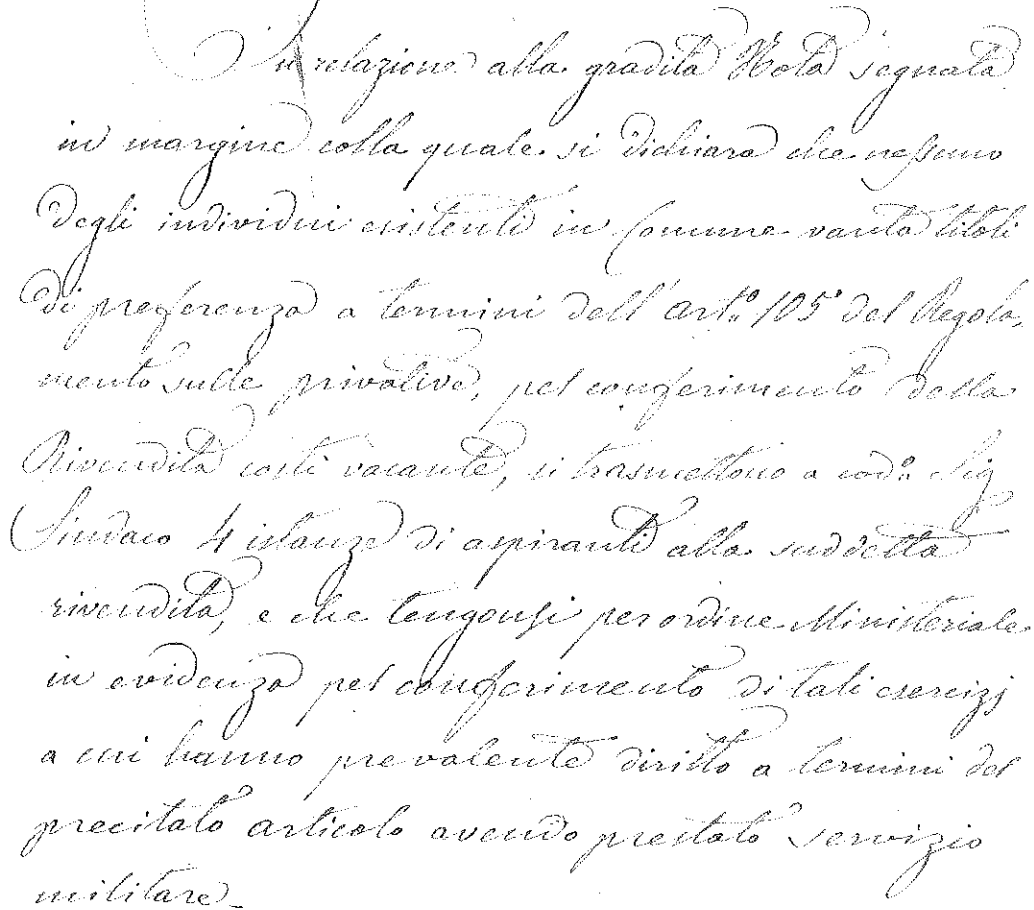 In relazione alla gradita Nota segnata
in margine colla quale si dichiara che nessuno
degli individui esistenti in Comune vanta titoli
di preferenza a termini dell'art.º 105º del Regola,
mento sulle privative, pel conferimento della
Rivendita costì vacante, si trasmettono a cod.º Sig
Sindaco 4 istanze di aspiranti alla suddetta
rivendita, e che tengonsi per ordine Ministeriale
in evidenza pel conferimento di tali esercizj
a cui hanno prevalente diritto a termini del
precitato articolo avendo prestato servizio
militare.